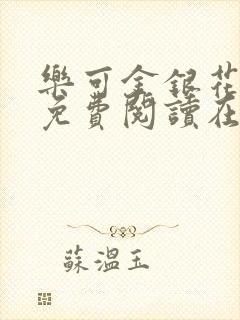 樂可金銀花
免費閱讀在
蘇溫玉